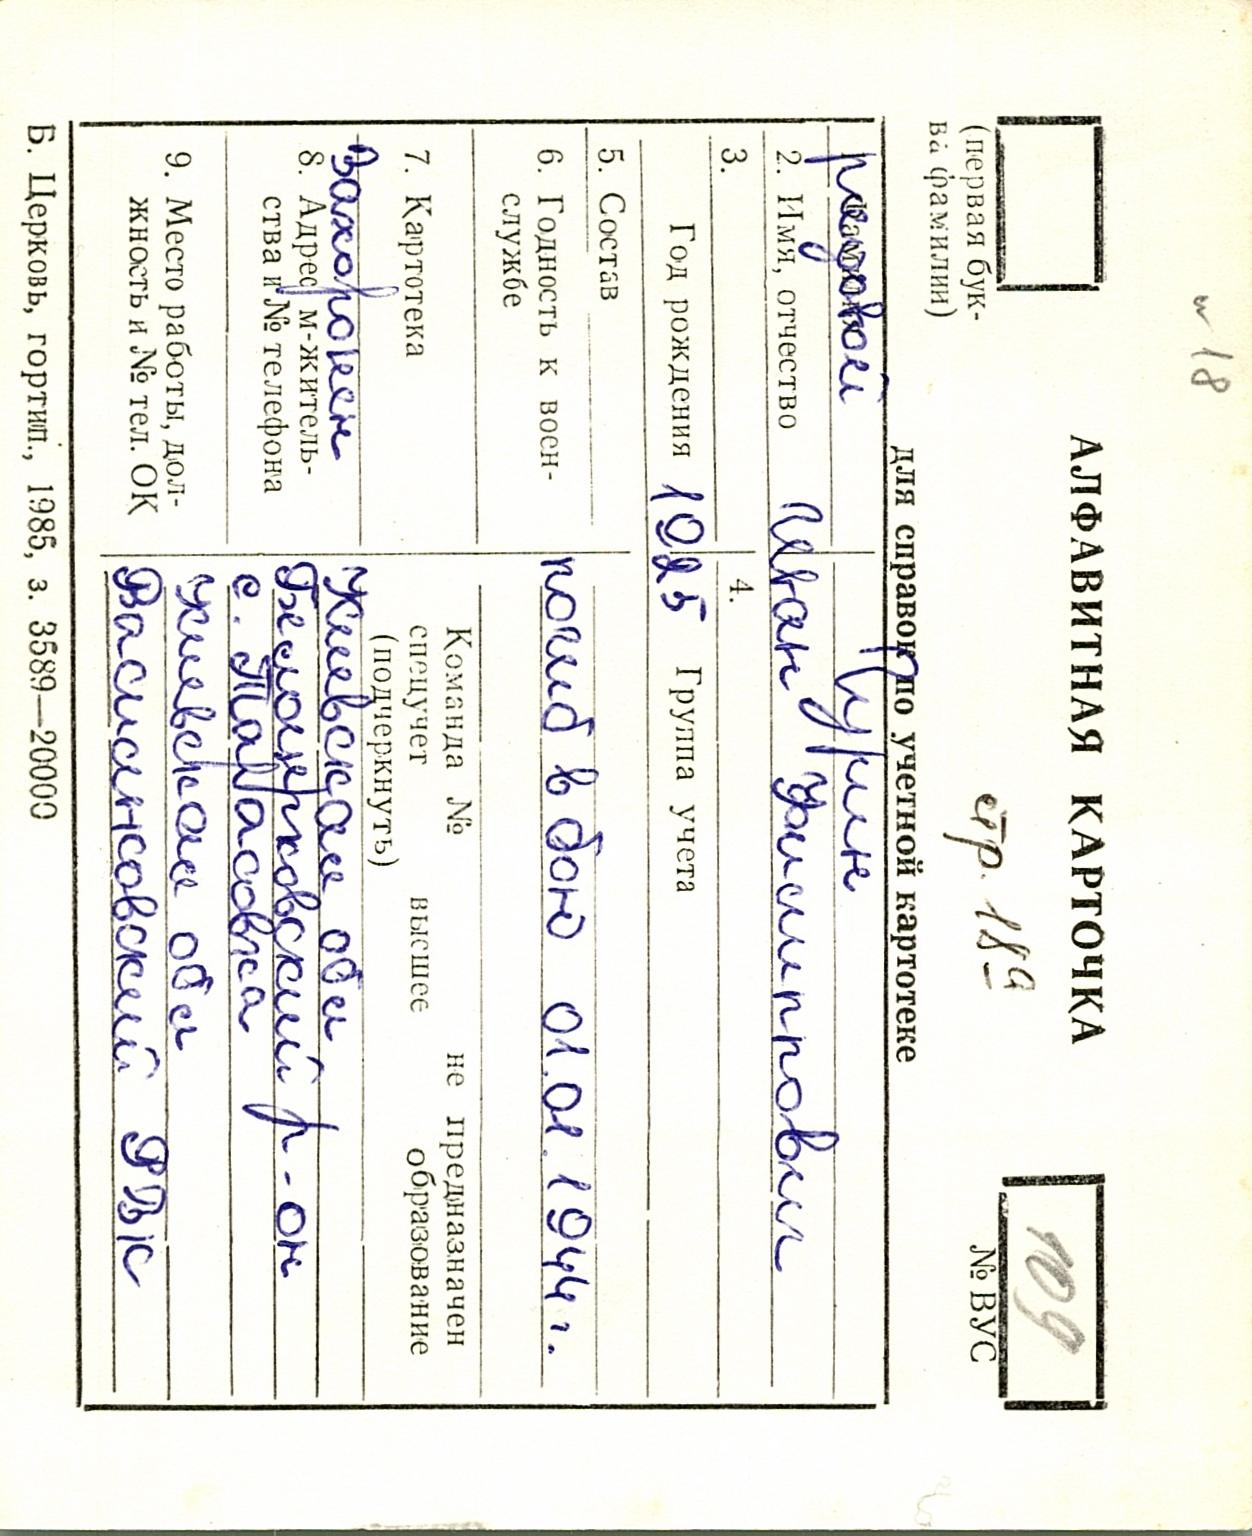 № 18
АЛФАВИТНАЯ КАРТОЧКА
(первая бук-
ва фамилии)
стр. 18а
109
№ ВУС
для справок по учетной картотеке
рядовой
Цурин
2. Имя, отчество Иван Филиппович
3.
4.
Год рождения 1925 Группа учета
5. Состав
6. Годность к воен-
службе
погиб в бою 01.01.1944 г.
7. Картотека
Команда № не предназначен
спецучет высшее образование
(подчеркнуть)
Захоронен
8. Адрес м-житель-
ства и № телефона
Киевская обл
Белоцерковский р-он
с. Тарасовка
9. Место работы, дол-
жность и № тел. ОК
Киевская обл
Васильковский РВК
Б. Церковь, гортип., 1985, з. 3589—20000